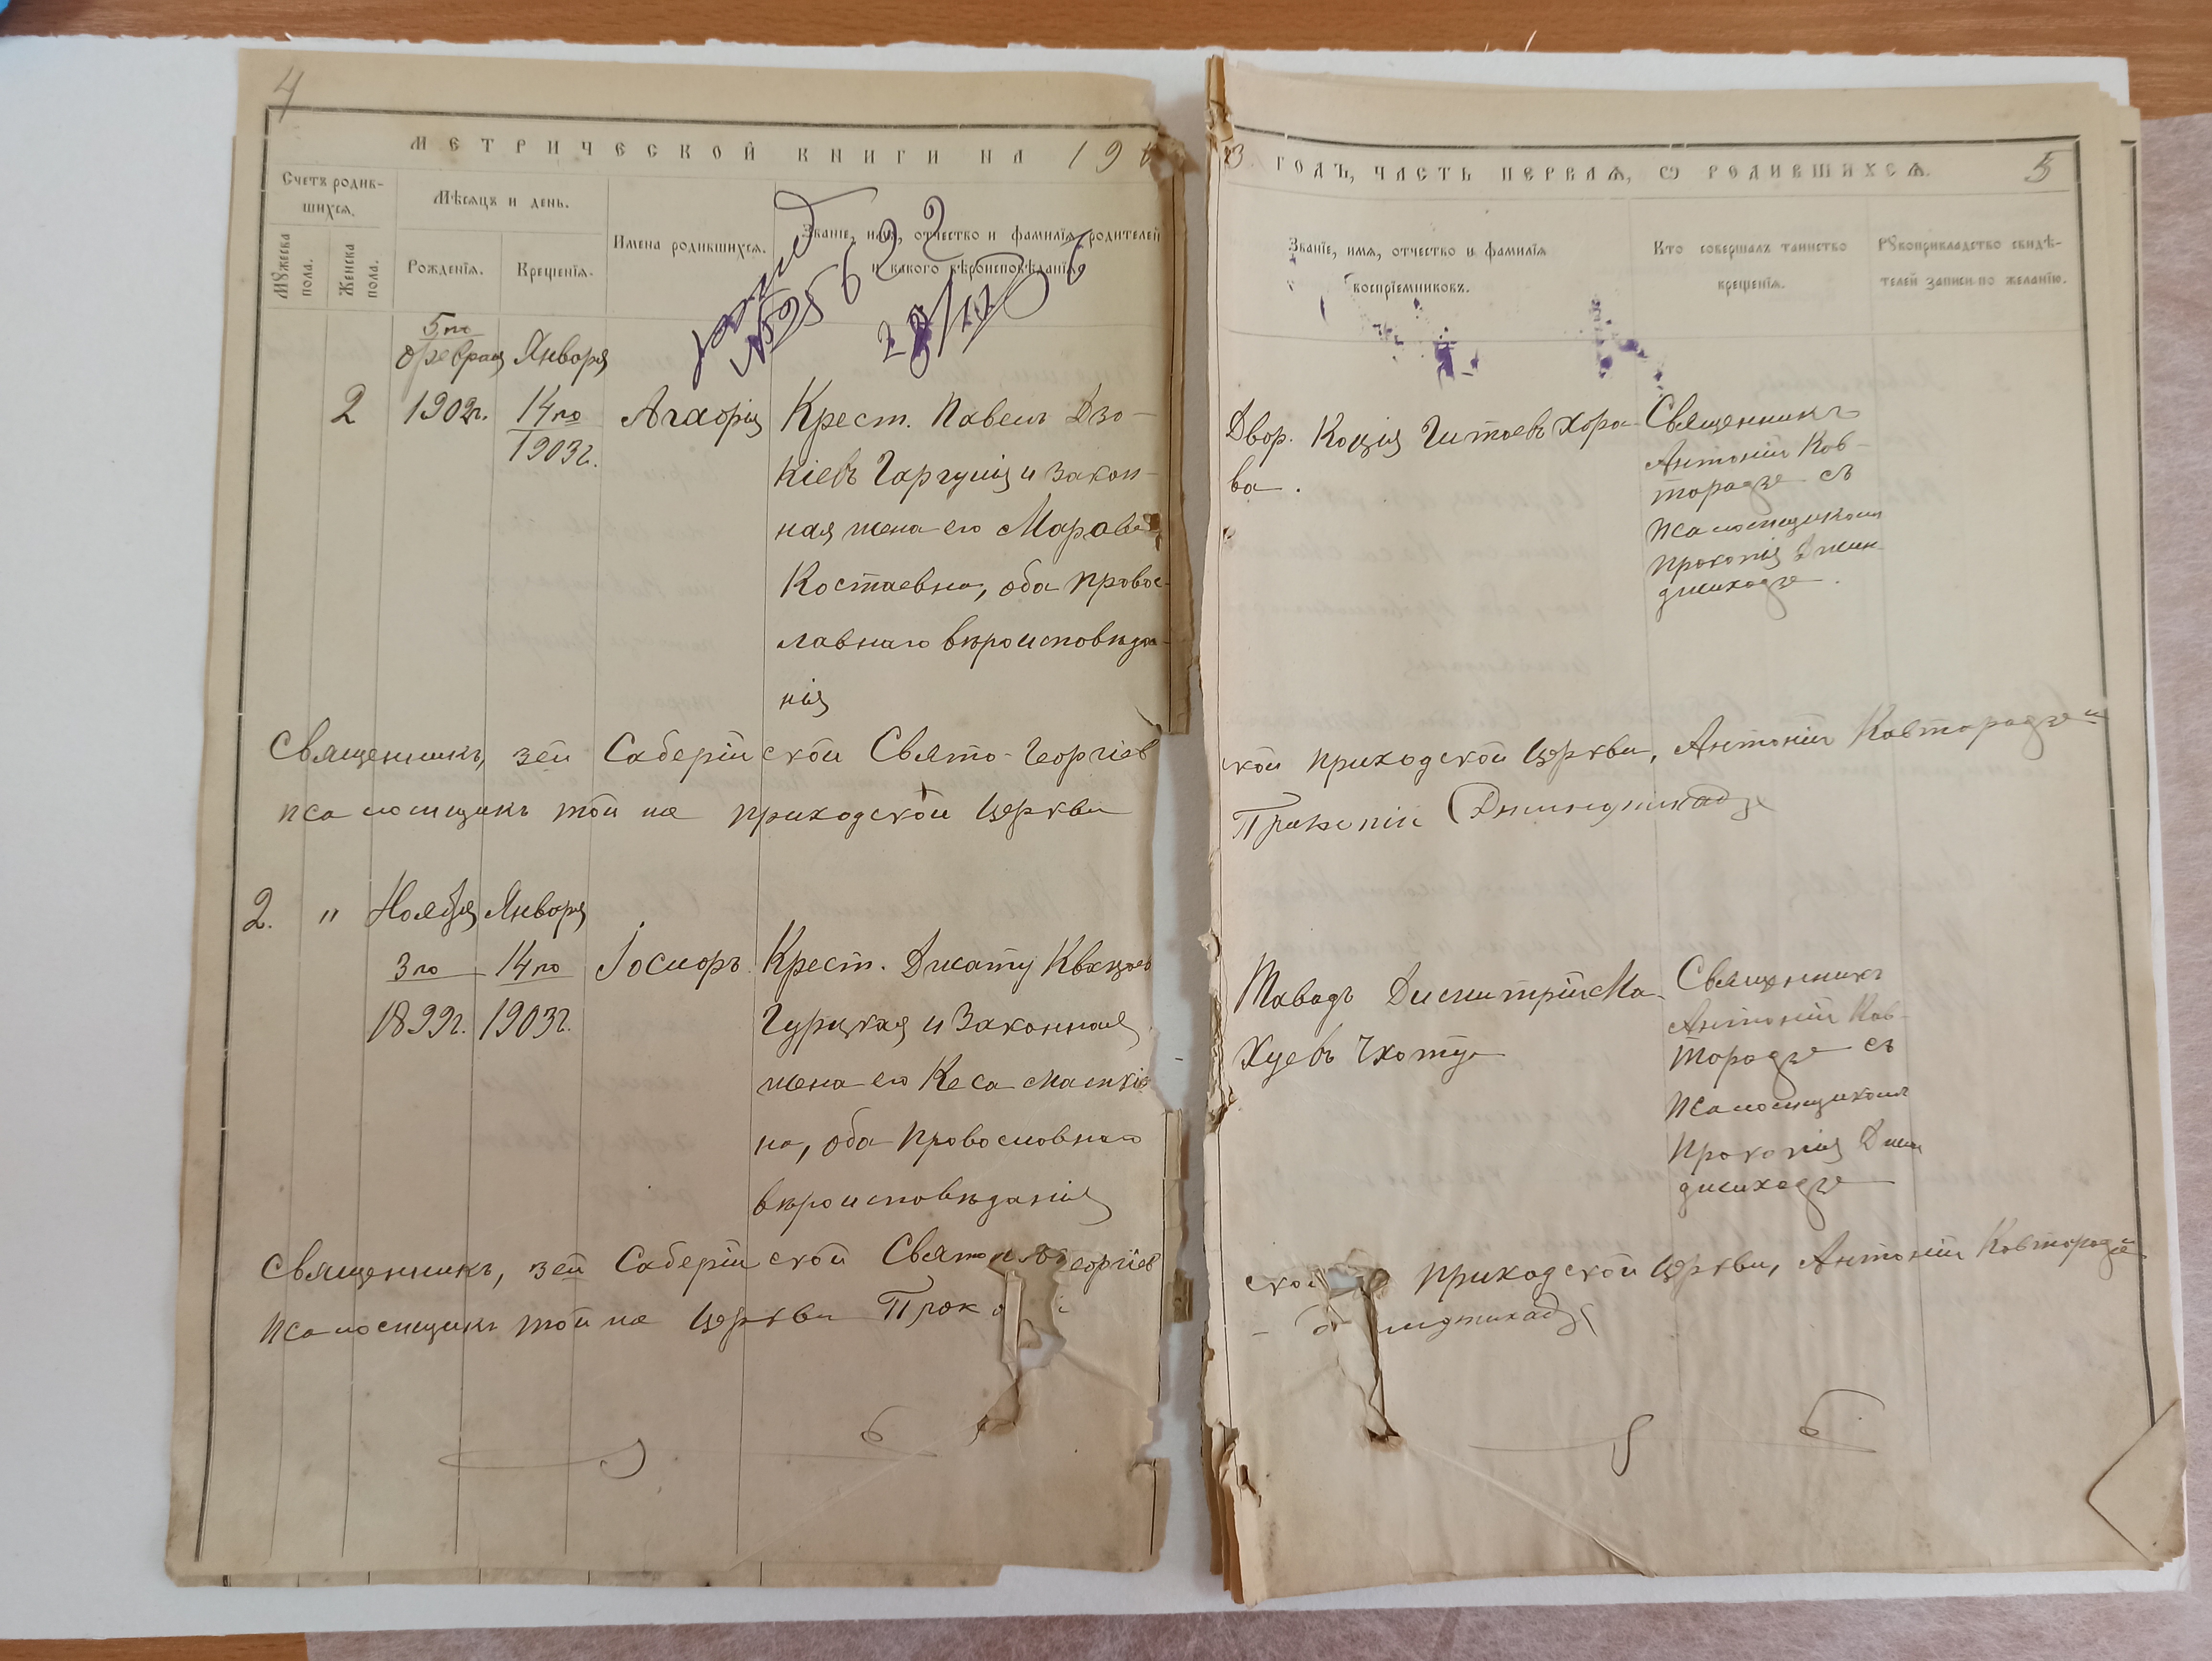 4
МЕТРИЧЕСКОЙ КНИГИ НА 190
3 ГОДЪ, ЧАСТЬ ПЕРВАЯ, Ѡ РОДИВШИХСЯ.
5
Счетъ родив-
шихся.
Мѣсяцъ и день.
Мужеска
пола.
Женска
пола.
Рожденія.
Крещенія.
Имена родившихся.
Званіе, имя, отчество и фамилія родителей
и какого вѣроисповѣданія.
Званіе, имя, отчество и фамилія
воспріемниковъ.
Кто совершалъ таинство
крещенія.
Рукоприкладство свидѣ-
телей записи по желанію.
№ 25622
2
5го
Февраля
1902г.
Января
14го
1903г.
Агафія
Крест. Павелъ Дзо-
кіевъ Гаргулія и закон-
ная жена его
Костаевна, оба правос-
лавнаго вѣроисповѣда-
нія
Двор. Коція Гитоевъ Хора-
ва.
Священникъ
Антоній Кав-
торадзе съ
псаломщикомъ
Прокопія Джин-
джихадзе.
Священникъ, зей Саберійской Свято-Георгіев
ской приходской церкви, Антоній Кавторадзе и
псаломщикъ той же приходской церкви
Прокопій Джинджихадзе
2.
"
Ноября
3го
1899г.
Января
14го
1903г.
Іосифъ
Крест. Джату
Гурцкая и законная
жена его Кеса
на, оба православнаго
вѣроисповѣданія
Тавадъ Димитрій Ма-
хуевъ Чхотуа
Священникъ
Антоній Кав-
торадзе съ
псаломщикомъ
Прокопія Джин
джихадзе
Священникъ, зей Саберійской Свято Георгіев
ской приходской церкви, Антоній Кавторадзе и
псаломщикъ той же церкви Проко
нджихадзе